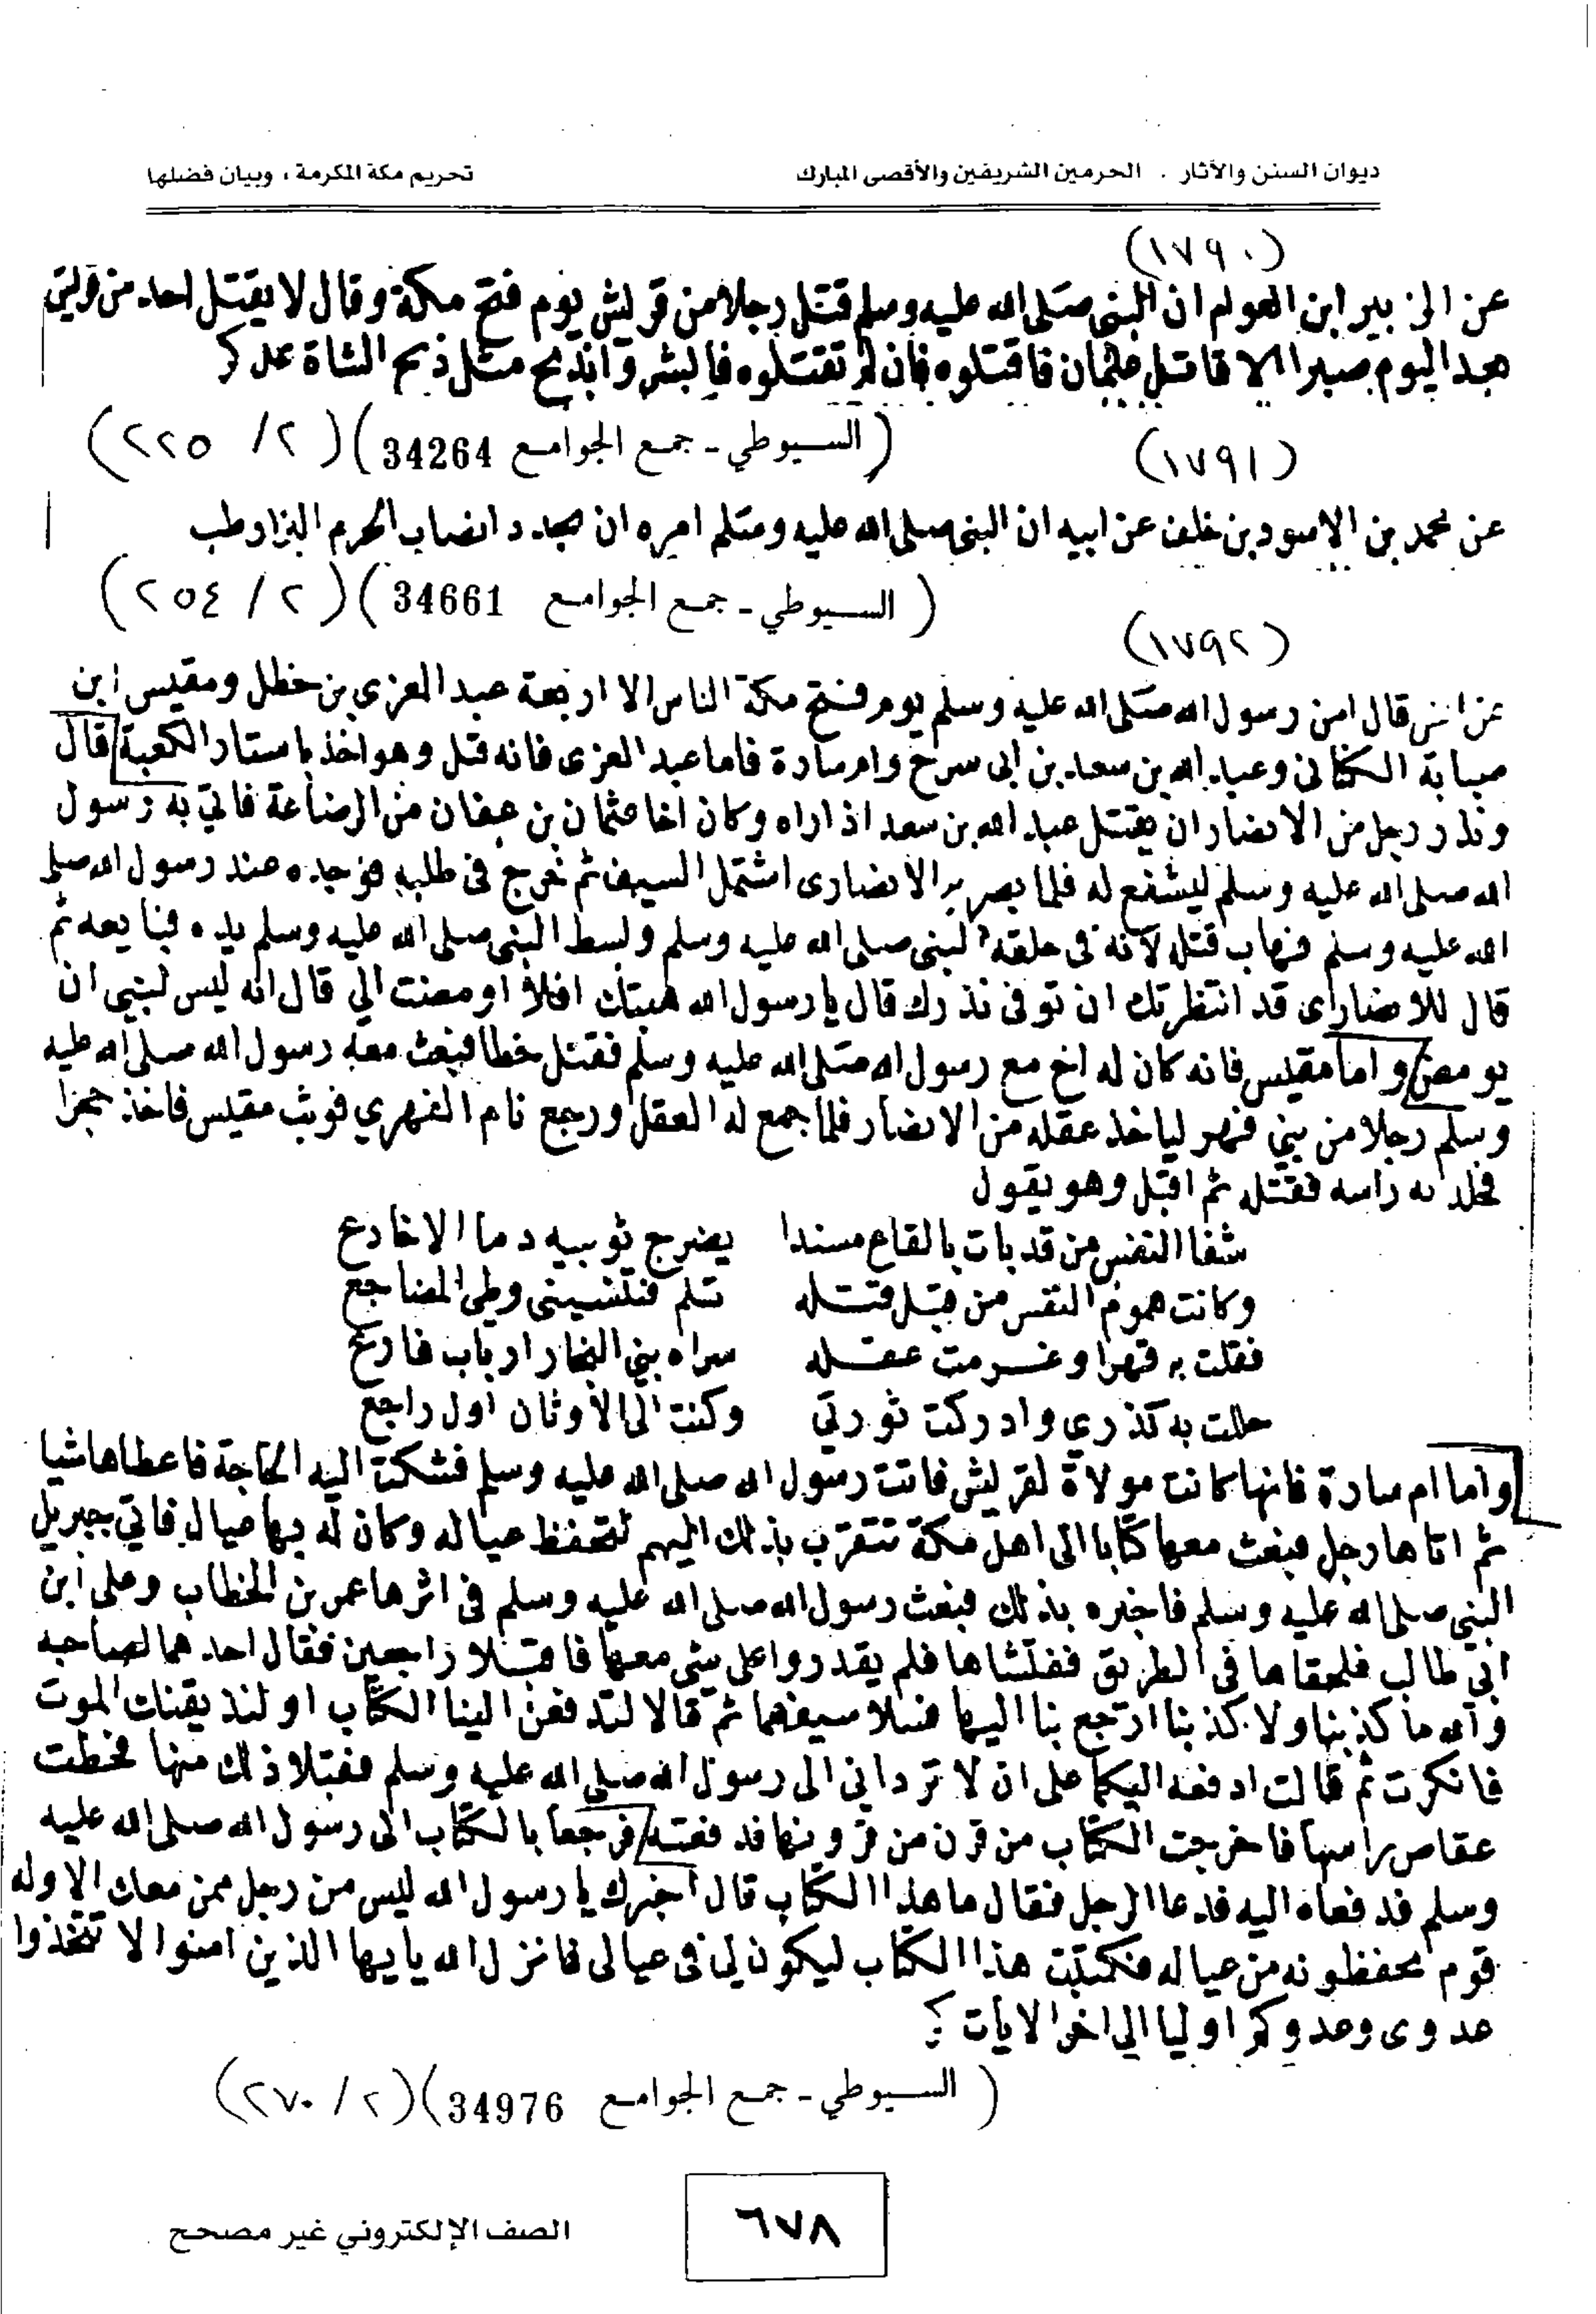 ديوان السنن والآثار . الحرمين الشريفين والأقصى المبارك
تحريم مكة المكرمة ، وبيان فضلها
(١٧٩٠)
عن الزبير ابن العوام ان النبى صلى الله عليه وسلم قتل رجلا من قريش يوم فتح مكة وقال لا يقتل احد من قريش
بعد اليوم صبرا الا قاتل عثمان فاقتلوه فان لم تقتلوه فابشروا بذبح مثل ذبح الشاة عد كر
(السيوطي - جمع الجوامع 34264) (٢/ ٢٢٥)
(١٧٩١)
عن محمد بن الاسود بن خلف عن ابيه ان النبى صلى الله عليه وسلم امره ان يجدد انصاب الحرم البزار وطب
(السيوطي - جمع الجوامع 34661) (٢/ ٢٥٤)
(١٧٩٢)
عن انس قال امن رسول الله صلى الله عليه وسلم يوم فتح مكة الناس الا اربعة عبد العزى بن خطل ومقيس ابن
صبابة الكنانى وعبد الله بن سعد بن ابى سرح وام سارة فاما عبد العزى فانه قتل وهو اخذ باستار الكعبة قال
ونذر رجل من الانصار ان يقتل عبد الله بن سعد اذا راه وكان اخا عثمان بن عفان من الرضاعة فاتي به رسول
الله صلى الله عليه وسلم ليشفع له فلما بصر به الانصارى اشتمل السيف ثم خرج فى طلبه فوجده عند رسول الله صلى
الله عليه وسلم فهاب قتله لانه فى حلقة النبى صلى الله عليه وسلم وبسط النبى صلى الله عليه وسلم يده فبايعه ثم
قال للانصارى قد انتظرتك ان توفى نذرك قال يا رسول الله هبتك افلا اومضت الي قال انه ليس لنبي ان
يومض واما مقيس فانه كان له اخ مع رسول الله صلى الله عليه وسلم فقتل خطا فبعث معه رسول الله صلى الله عليه
وسلم رجلا من بني فهر لياخذ عقله من الانصار فلما جمع له العقل ورجع نام الفهري فوثب مقيس فاخذ حجرا
فجلد به راسه فقتله ثم اقبل وهو يقول
شفا النفس من قد بات بالقاع مسندا يضرج ثوبيه دما الاخادع
وكانت هموم النفس من قبل قتله تلم فتنسينى وطى المضاجع
فقلت به قهرا وغرمت عقله سراه بني النجار ارباب فارع
حللت به نذري وادركت ثورتي وكنت الى الأوثان اول راجع
واما ام سارة فانها كانت مولاة لقريش فاتت رسول الله صلى الله عليه وسلم فشكت اليه الحاجة فاعطاها شيا
ثم اتاها رجل فبعث معها كتابا الى اهل مكة تتقرب بذلك اليهم لتحفظ عياله وكان له بها عيال فاتي جبريل
النبي صلى الله عليه وسلم فاخبره بذلك فبعث رسول الله صلى الله عليه وسلم فى اثرها عمر بن الخطاب وعلى ابن
ابى طالب فلحقاها فى الطريق ففتشاها فلم يقدروا على شى معها فاقبلا راجعين فقال احدهما لصاحبه
والله ما كذبنا ولا كذبنا ارجع بنا اليها فسلا سيفهما ثم قالا لتدفعن الينا الكتاب او لنذيقنك الموت
فانكرت ثم قالت ادفعه اليكما على ان لا تردانى الى رسول الله صلى الله عليه وسلم فقبلا ذلك منها فحطت
عقاص راسها فاخرجت الكتاب من قرن من قرونها فدفعته فرجعا بالكتاب الى رسول الله صلى الله عليه
وسلم فدفعاه اليه فدعا الرجل فقال ما هذا الكتاب قال اخبرك يا رسول الله ليس من رجل ممن معك الا وله
قوم يحفظونه من عياله فكتبت هذا الكتاب ليكون لي فى عيالى فانزل الله يايها الذين امنوا لا تتخذوا
عدوى وعدوكم اوليا الى اخر الايات كر
(السيوطي - جمع الجوامع 34976) (٢/ ٢٧٠)
٦٧٨
الصف الإلكتروني غير مصحح